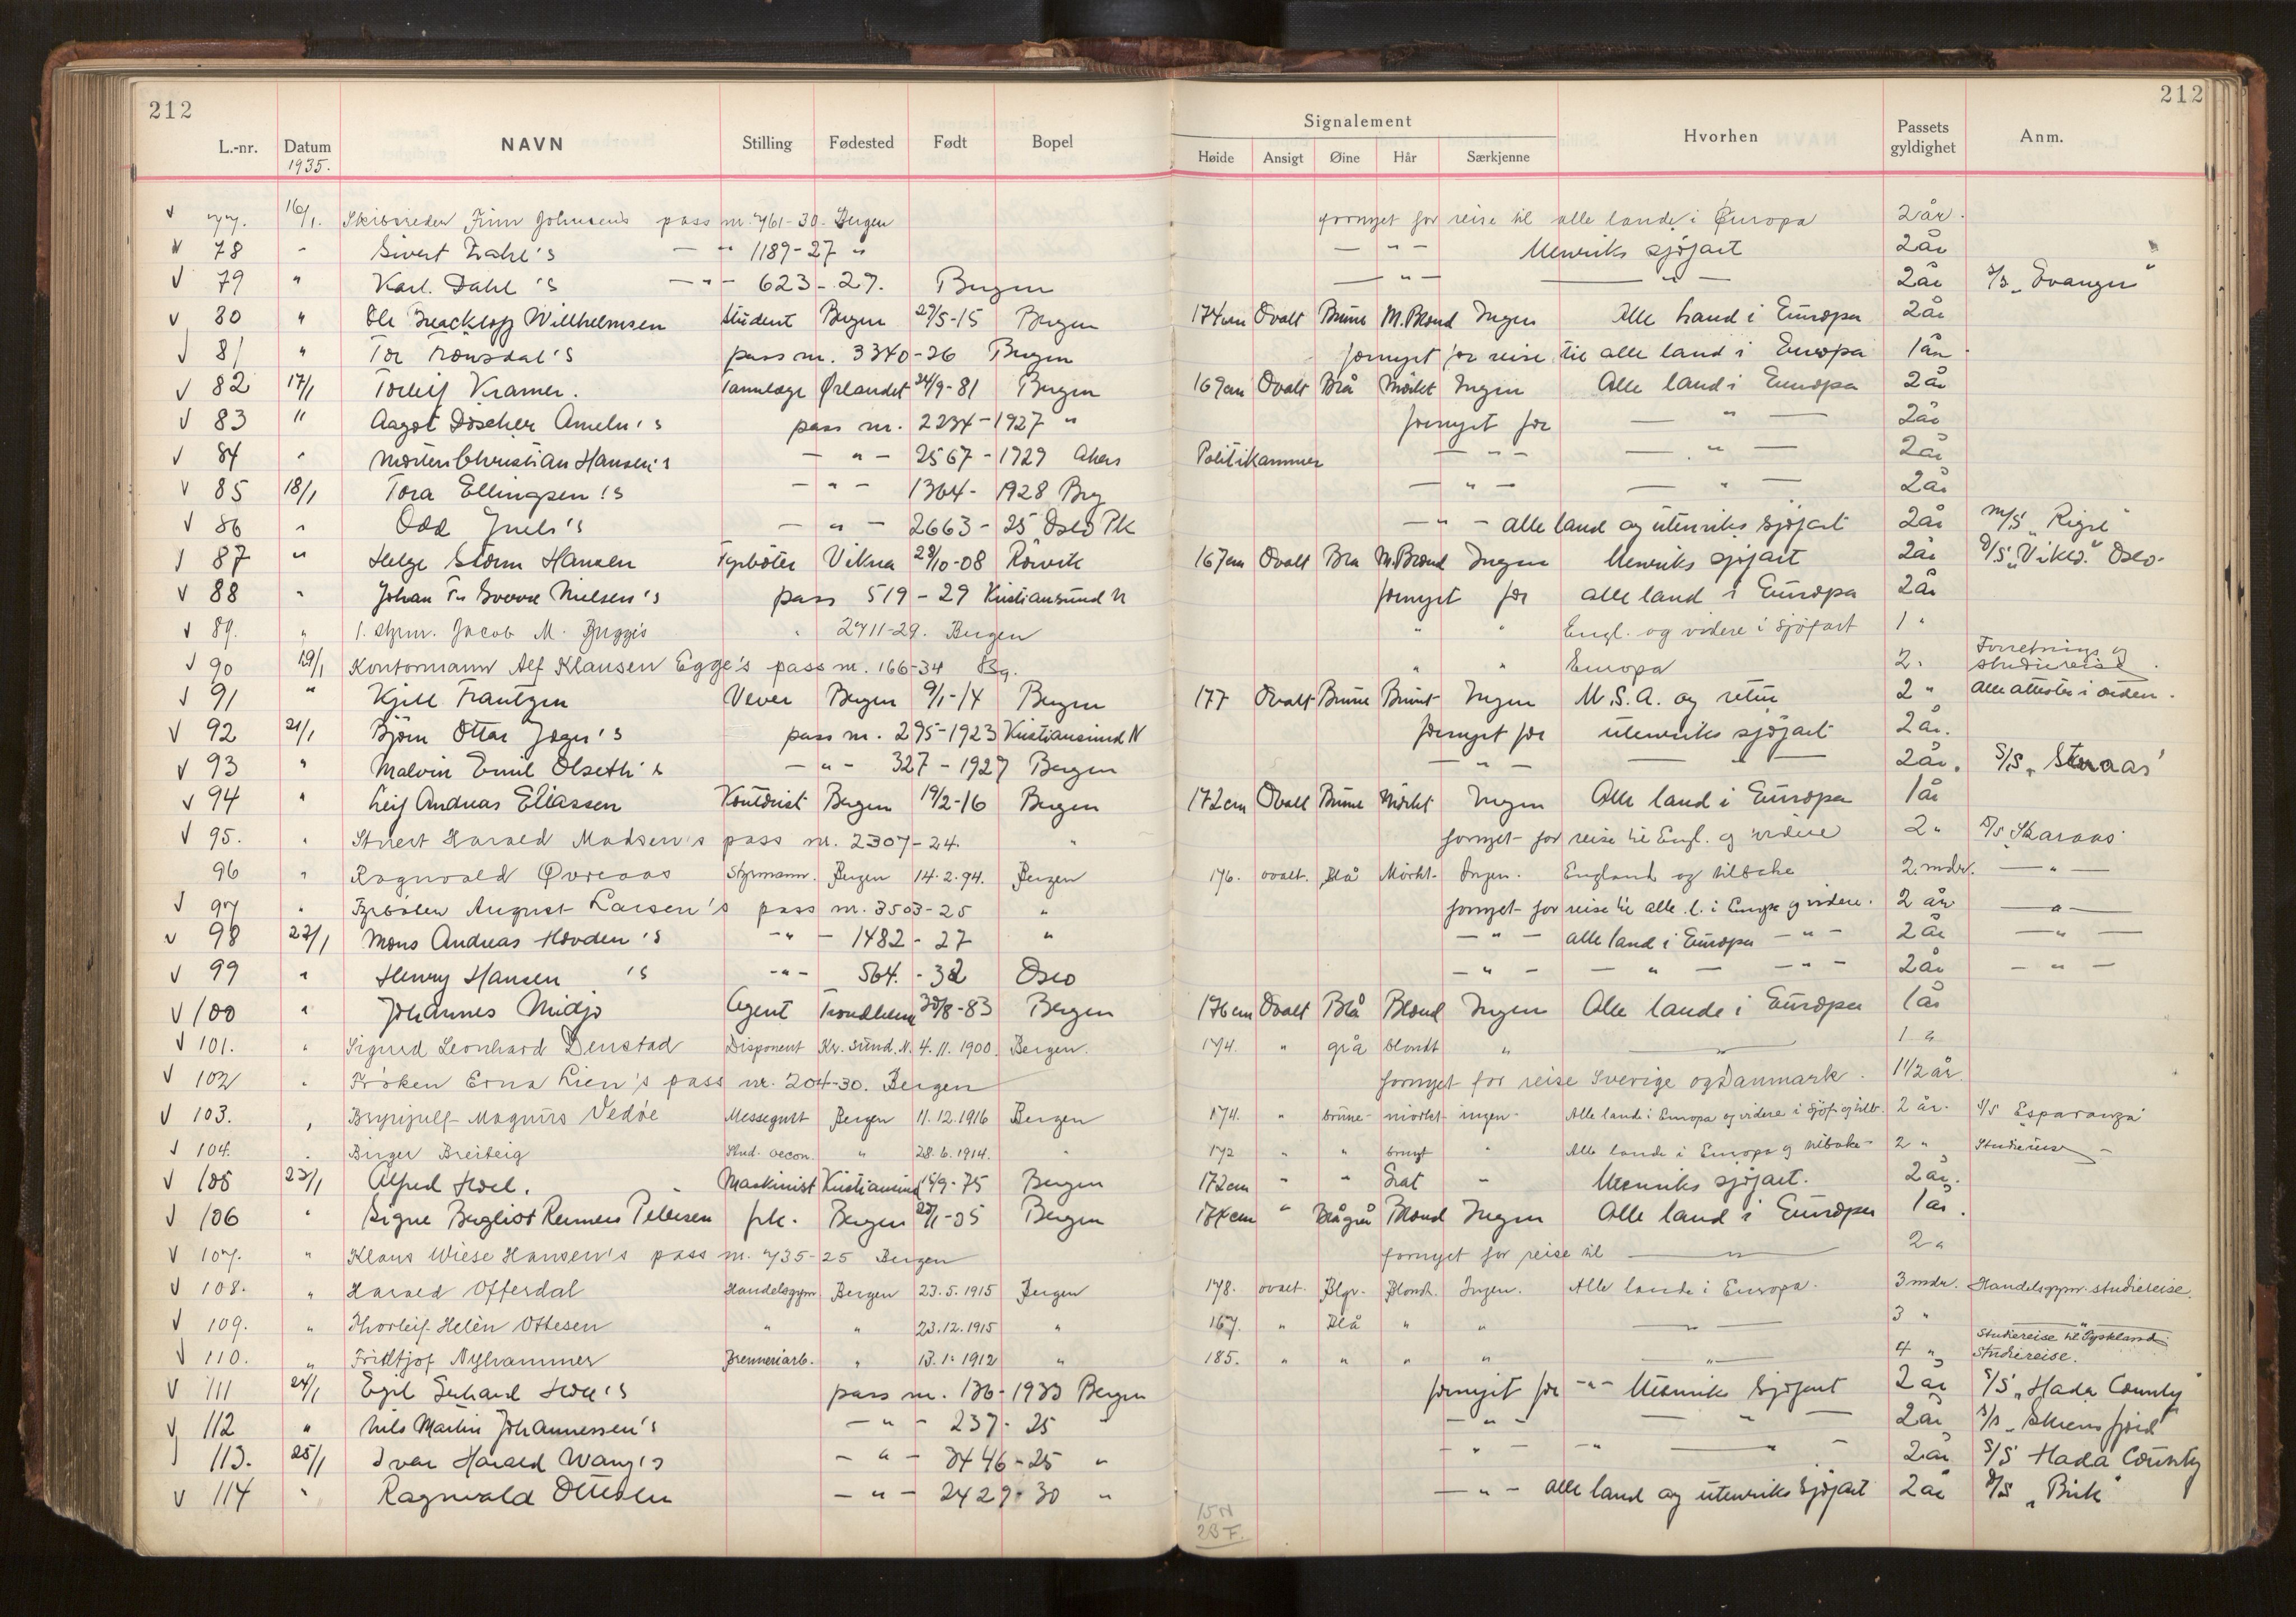 212
212
L.-nr. Datum NAVN Stilling Fødested Født Bopel Signalement Hvorhen Passets gyldighet Anm.
1935.
Høide Ansigt Øine Hår Særkjenne
v 77. 16/1. Skibsreder Finn Johnsens pass nr. 761-30. Bergen fornyet for reise til alle lande i Europa 2 år.
v 78 " Sivert Dahl's — " 1189-27 " — " — Utenriks sjøfart 2 år
v 79 " Karl Dahl's — " — 623-27. Bergen — " — — " — 2 år
v 80 " Ole Willhelmsen Student Bergen 27/5-15 Bergen 174 cm Ovalt Brune M. Blond Ingen Alle land i Europa 2 år
v 81 " Tor Trønsdal's pass nr. 3340-26 Bergen fornyet for reise til alle land i Europa 1 år.
v 82 17/1 Torleif Kramer. Tannlæge Ørlandet 24/9-81 Bergen 169 cm Ovalt Blå Mørkt Ingen Alle land i Europa 2 år
v 83 " Aagot Döscher Ameln's pass nr. 2234-1927 " fornyet for — " — 2 år
v 84 " Morten Christian Hansen's — " — 2567-1929 Akers Politikammer — " — — " — 2 år
v 85 18/1 Tora Ellingsen's — " — 1364-1928 Brg — " — — " — 2 år
v 86 " Odd Juels's — " — 2663-25 Oslo Pk — " — alle land og utenriks sjøfart 2 år M/S "Rigel"
v 87 " Helge Storm Hansen Fyrbøter Vikna 28/10-08 Rørvik 167 cm Ovalt Bla M. Blond Ingen Utenriks sjøfart 2 år D/S "Vikld." Oslo.
v 88 " Johan Sverre Nielsen's pass 519-29 Kristiansund N fornyet for alle land i Europa 2 år
v 89. " 1. styrm. Jacob M. " 2711-29. Bergen " " Engl. og videre i sjøfart 1 "
v 90 19/1 Kontormann Alf Klausen Egge's pass nr. 166-34 Bg. " " Europa 2 " Forretnings og studiereise.
v 91 " Kjell Frantzen Vever Bergen 9/1-14 Bergen 177 Ovalt Brune Brunt Ingen U.S.A. og retur 2 " Alle attester i orden.
v 92 21/1 Bjørn Ottar Jæger's pass nr. 295-1923 Kristiansund N fornyet for utenriks sjøfart 2 år.
v 93 " Malvin Emil Olseth's — " — 327-1927 Bergen — " — — " — 2 år. S/S
v 94 " Leif Andreas Eliassen Kontorist Bergen 19/2-16 Bergen 172 cm Ovalt Brune Mørkt Ingen Alle land i Europa 1 år
v 95. " Stuert Harald Madsen's pass nr. 2307-24. " fornyet for reise til Engl. og videre 2 " D/S "Skaraas"
96 " Ragnvald Øvreaas Styrmann. Bergen 14.2.94. Bergen 176. ovalt. Blå Mørkt. Ingen. England og tilbake 2. mdr. — " —
v 97 " Fyrbøter August Larsen's pass nr. 3503-25 " fornyet for reise til alle l. i Europa og videre. 2 år — " —
v 98 22/1 Mons Andreas Hovden's — " — 1482-27 " — " — alle land i Europa — " — 2 år — " —
v 99 " Henry Hansen's — " — 564.-32 Oslo — " — — " — — " — 2 år — " —
v 100 " Johannes Midjo Agent Trondheim 30/8-83 Bergen 176 cm Ovalt Blå Blond Ingen Alle lande i Europa 1 år
v 101. " Sigurd Leonhard Denstad Disponent Kr. sund. N. 4.11.1900. Bergen. 174. " grå blondt " — " — 1 "
v 102 " Frøken Erna Lien's pass nr. 204-30. Bergen fornyet for reise Sverige og Danmark. 1 1/2 år
v 103. " Brynjulf Magnus Vedøe Messegutt Bergen 11.12.1916 Bergen 174. " brune mørkt ingen Alle lande i Europa og videre i sjøf. og tilb. 2 år. S/S "Esparanza"
v 104. " Birger Breiteig Stud. oecon. " 28.6.1914. " 172 " " brunt " Alle lande i Europa og tilbake 2 " Studiereise
v 105 23/1 Alfred Hoel. Maskinist Kristiansund 15/9-75 Bergen 172 cm " " Grat " Utenriks sjøfart. 2 år.
v 106 " Signe Bergliot Reimers Pettersen frk. Bergen 23/1-05 Bergen 174 cm " Blågrå Blond Ingen Alle land i Europa 1 år.
v 107. " Klaus Wiese Hansen's pass nr. 735-25 Bergen fornyet for reise til — " — 2 "
v 108. " Harald Offerdal Handelsgym Bergen 23.5.1915 Bergen 178. ovalt. Blgr. Blondt. Ingen. Alle lande i Europa. 3 mdr. Handelsgym. studiereise.
v 109. " Thorleif Helén Ottesen " " 23.12.1915 " 167. " Blå " " — " — 3 " "
v 110. " Fridtjof Nyhammer Brenneriarb. " 13.1.1912 " 185. " " " " — " — 4 " Studiereise til Tyskland
Studiereise.
v 111 24/1 Egil Gerhard Hoel's pass nr. 136-1933 Bergen fornyet for — " — Utenriks Sjøfart 2 år S/S "Hada County"
v 112 " Nils Martin Johannessen's — " — 237-25 " — " — — " — 2 år S/S "Skiensfjord"
v 113. 25/1 Ivar Harald Wang's — " — 3446-25 " — " — — " — 2 år S/S Hada County
v 114 " Ragnvald Ottesen — " — 2429-30 " — " — alle land og utenriks Sjøfart 2 år D/S "Birk"
15 N
23 F.